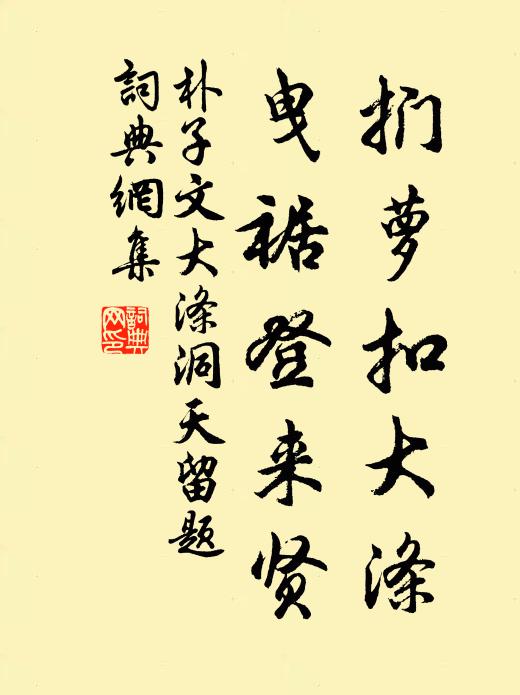 扪萝扣大涤
曳裾登来贤
朴子文大涤洞天留题
詞典網集
詞典網印